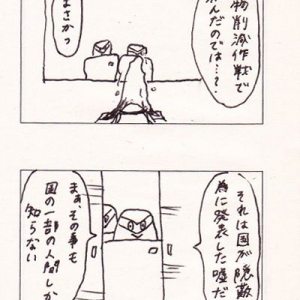 物削減作戦で
んだのでは…?
まさかっ
それは国が隠蔽
為に発表した嘘だ
まぁ、その事も
国の一部の人間しか
知らない